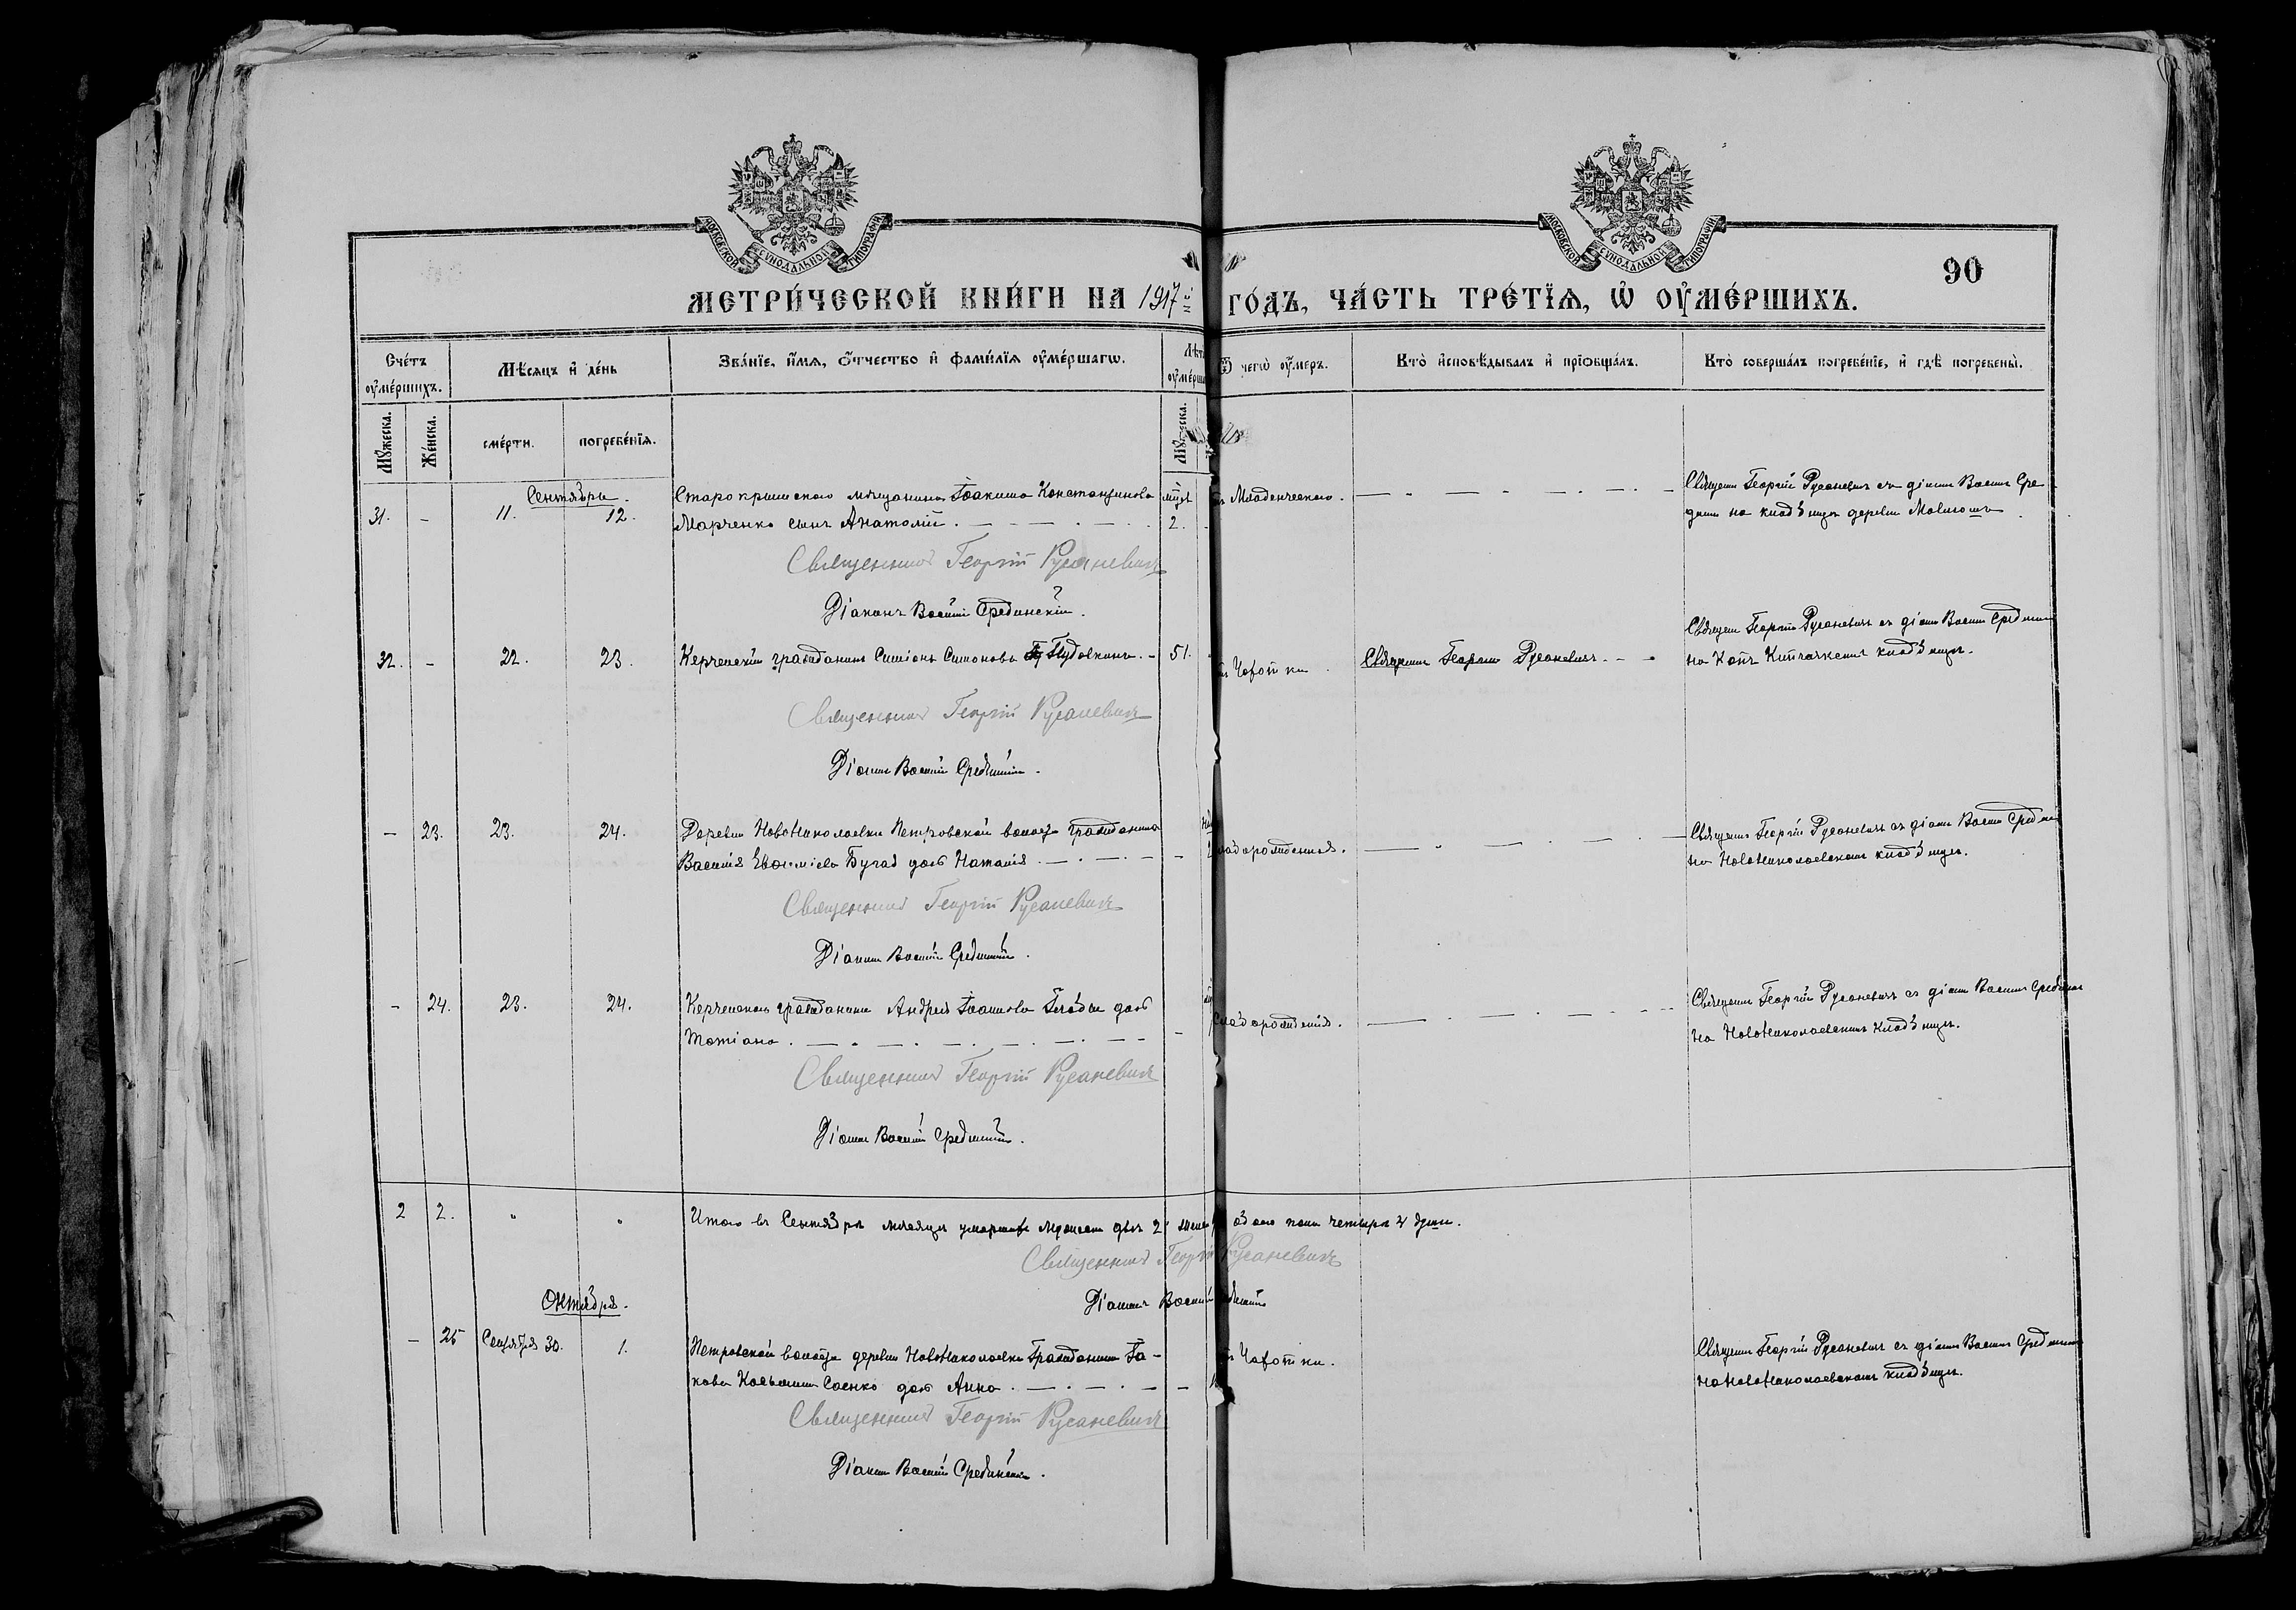 МОСКОВСКОЙ СѴНОДАЛЬНОЙ ТИПОГРАФІИ
МОСКОВСКОЙ СѴНОДАЛЬНОЙ ТИПОГРАФІИ
90
МЕТРИ́ЧЕСКОЙ КНИ́ГИ НА 1917 ГО́ДЪ, ЧА́СТЬ ТРЕ́ТЇѦ, Ѡ҆ ОУ҆МЕ́РШИХЪ.
Сче́тъ оу҆ме́ршихъ.
Мѣ́сяцъ и҆ де́нь
Зва́нїе, и҆́мѧ, ѻ҆́тчество и҆ фами́лїѧ оу҆ме́ршагѡ.
Лѣт
оу҆ме́рша
Ѿ чегѡ̀ оу҆́меръ.
Кто̀ и҆сповѣ́дывалъ и҆ прїѡбща́лъ.
Кто̀ соверша́лъ погребе́нїе, и҆ гдѣ̀ погребены̀.
Мꙋ́жеска.
Же́нска.
сме́рти.
погребе́нїѧ.
Мꙋ́жеска.
Сентябрь.
31. - 11. 12.
Старокрымскаго мѣщанина Іоакима Константинова
Марченко сынъ Анатолій.
2.
Младенческаго.
Священ Георгій Русаневичъ съ діакон Васил Сре-
дин на кладбищѣ деревни
Священникъ Георгій Русаневичъ
Діаконъ Василій Срединскій.
32. - 22. 23.
Керченскій гражданинъ Симеонъ Симоновъ
51.
Чахотки.
Священ Георгій Русаневичъ.
Священ Георгій Русаневичъ съ діакон Васил Средин
на кладбищѣ.
Священникъ Георгій Русаневичъ
Діаконъ Василій Срединскій.
- 23. 23. 24.
Деревни НовоНиколаевки Петровской волости гражданина
Василія Евфиміева Бугая дочь Наталія.
Священ Георгій Русаневичъ съ діакон Васил Средин
на НовоНиколаевскомъ кладбищѣ.
Священникъ Георгій Русаневичъ
Діаконъ Василій Срединскій.
- 24. 23. 24.
Керченскаго гражданина Андрея Іоаннова дочь
Татіана.
Священ Георгій Русаневичъ съ діакон Васил Средин
на НовоНиколаевскомъ кладбищѣ.
Священникъ Георгій Русаневичъ
Діаконъ Василій Срединскій.
2 2. " "
Итого въ Сентябрѣ мѣсяцѣ умершихъ мужеска два 2 обоего пола четыре 4 души.
Священникъ Георгій Русаневичъ
Октябрь.
Діаконъ Василій
- 25 Сентября 30. 1.
Петровской волости деревни НовоНиколаевки гражданина Іа-
кова Косьмина Саенко дочь Анна.
Чахотки.
Священ Георгій Русаневичъ съ діакон Васил Средин
на НовоНиколаевскомъ кладбищѣ.
Священникъ Георгій Русаневичъ
Діаконъ Василій Срединскій.